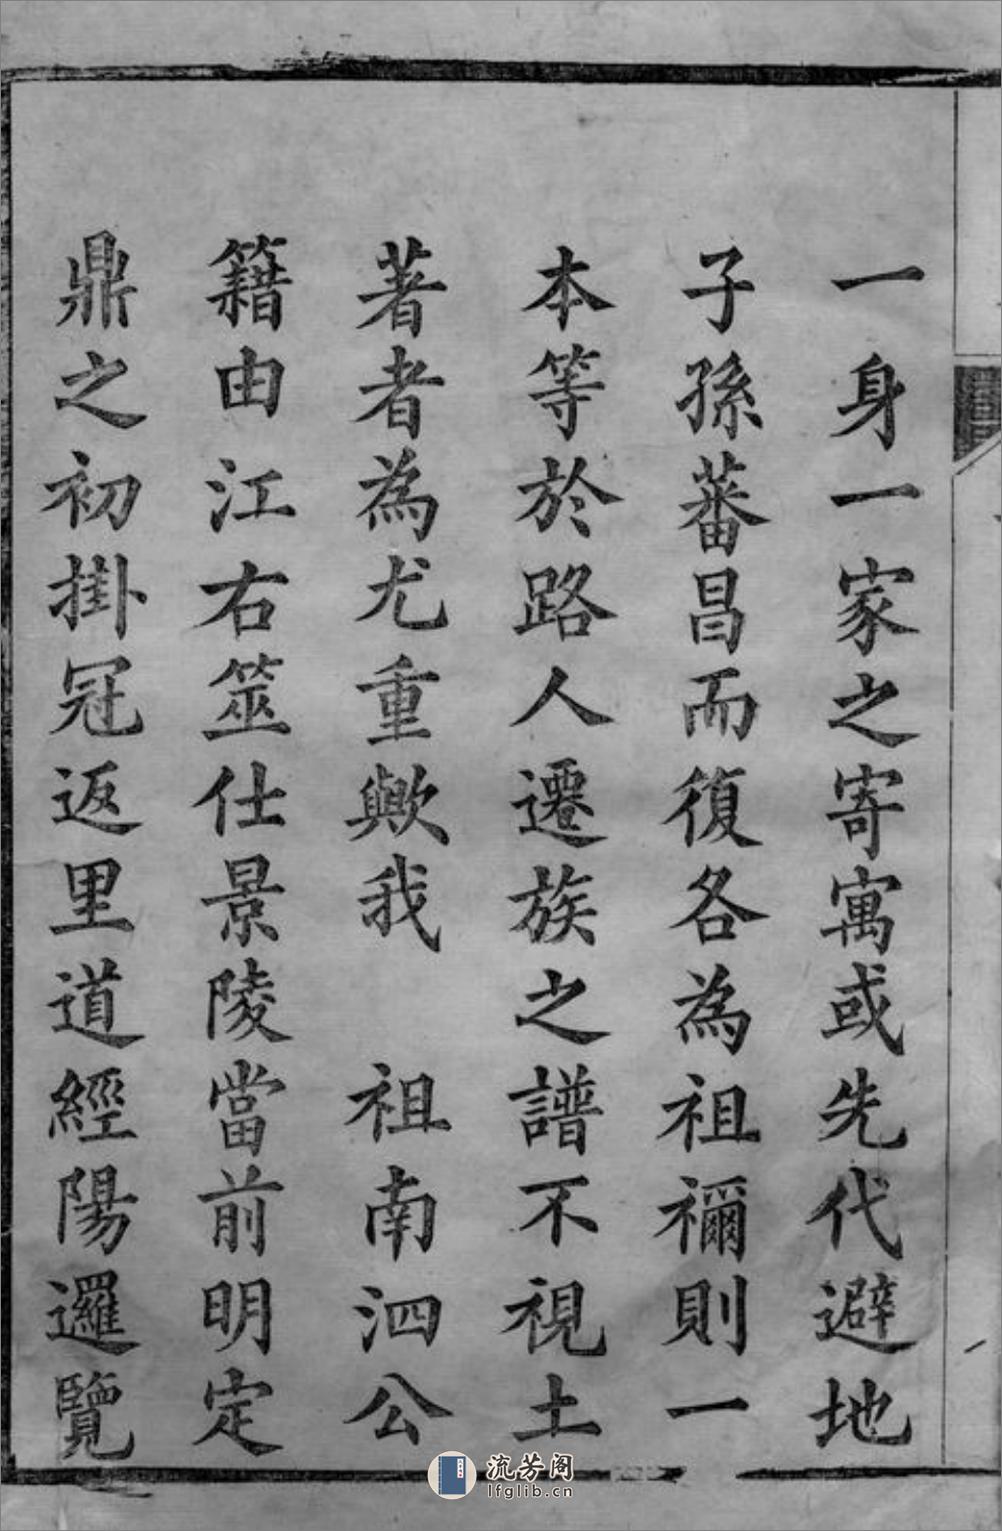 一身一家之寄寓或先代避地
子孫蕃昌而復各為祖禰則一
本等於路人遷族之譜不視土
著者為尤重歟我 祖南泗公
籍由江右筮仕景陵當前明定
鼎之初掛冠返里道經陽邏覽
流芳阁
lfglib.cn